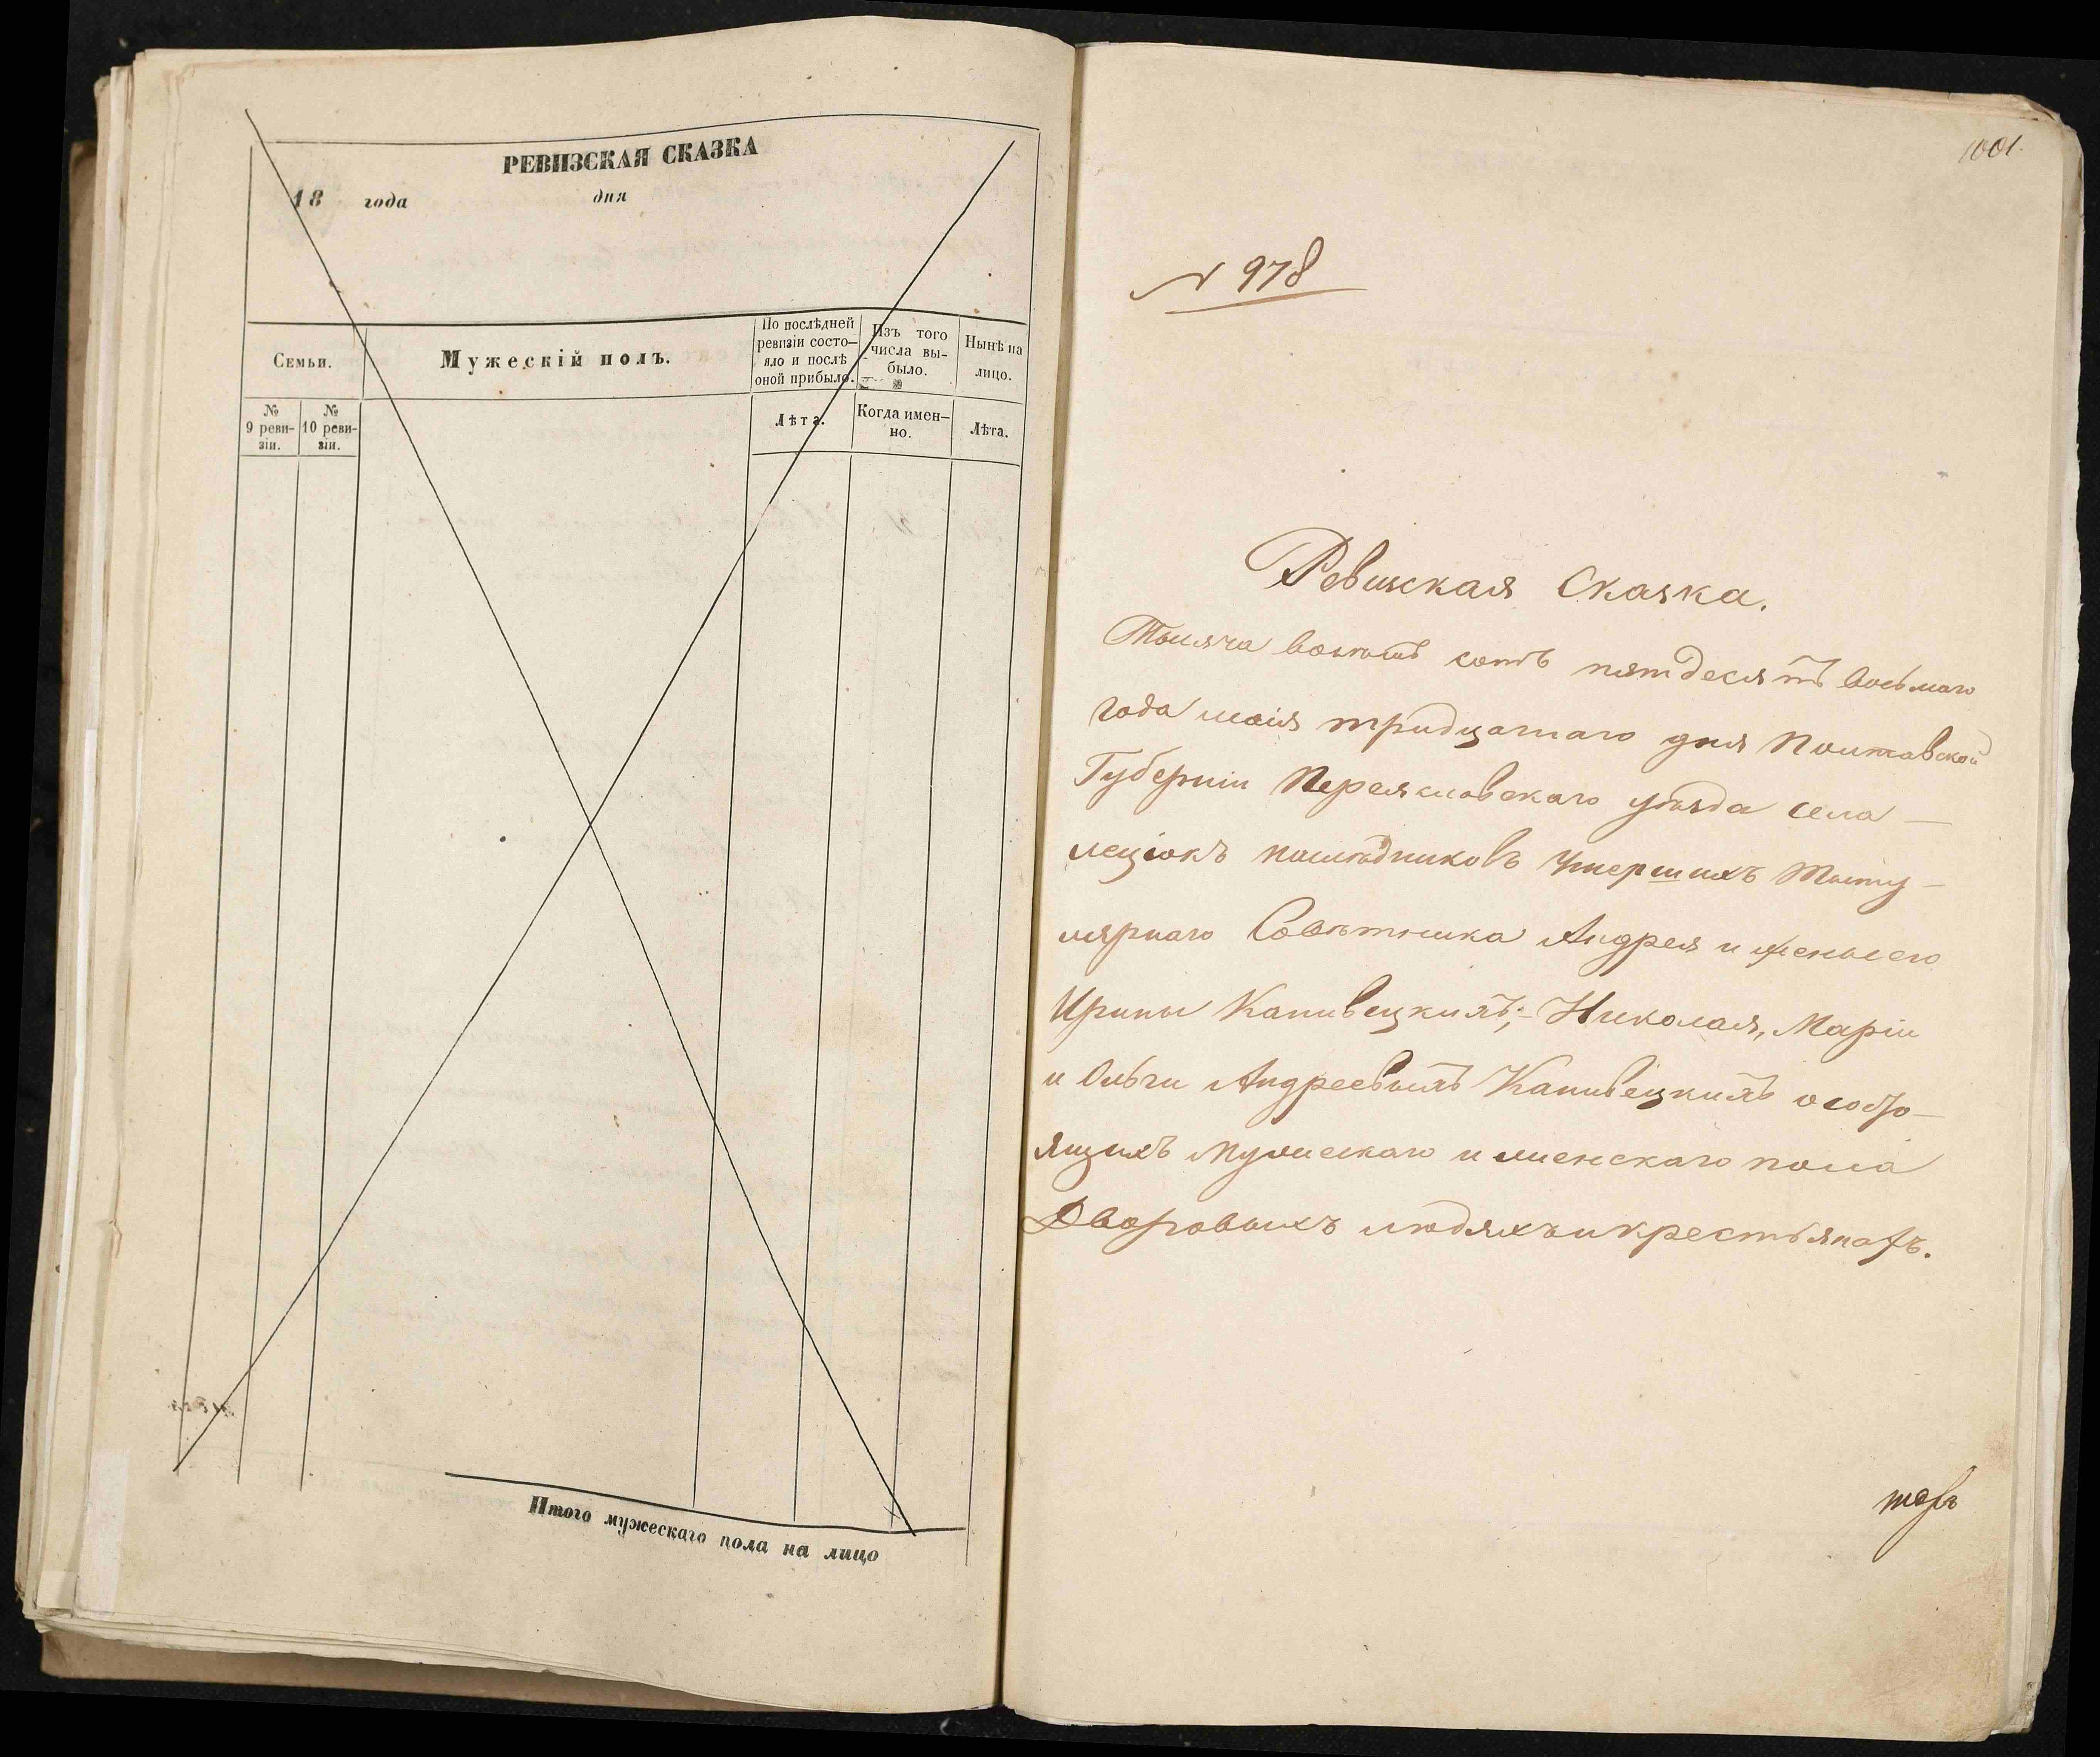 РЕВИЗСКАЯ СКАЗКА
18 года дня
Семьи.
Мужескій полъ.
По послѣдней
ревизіи состо-
яло и послѣ
оной прибыло.
Изъ того
числа вы-
было.
Нынѣ на
лицо.
№
9 реви-
зіи.
№
10 реви-
зіи.
Лѣта.
Когда имен-
но.
Лѣта.
Итого мужескаго пола на лицо
1001.
N 978
Ревизская Сказка.
Тысяча восемь сотъ пятдесятъ восьмаго
года маія тридцатаго дня Полтавской
Губерніи Переяславскаго уѣзда села
леціокъ наслѣдниковъ умершихъ Титу-
лярнаго Совѣтника Андрея и жены его
Ирины Каневецкихъ; Николая, Маріи
и Ольги Андреевыхъ Каневецкихъ о состо-
ящихъ мужескаго и женскаго пола
Дворовыхъ людяхъ и крестьянахъ.